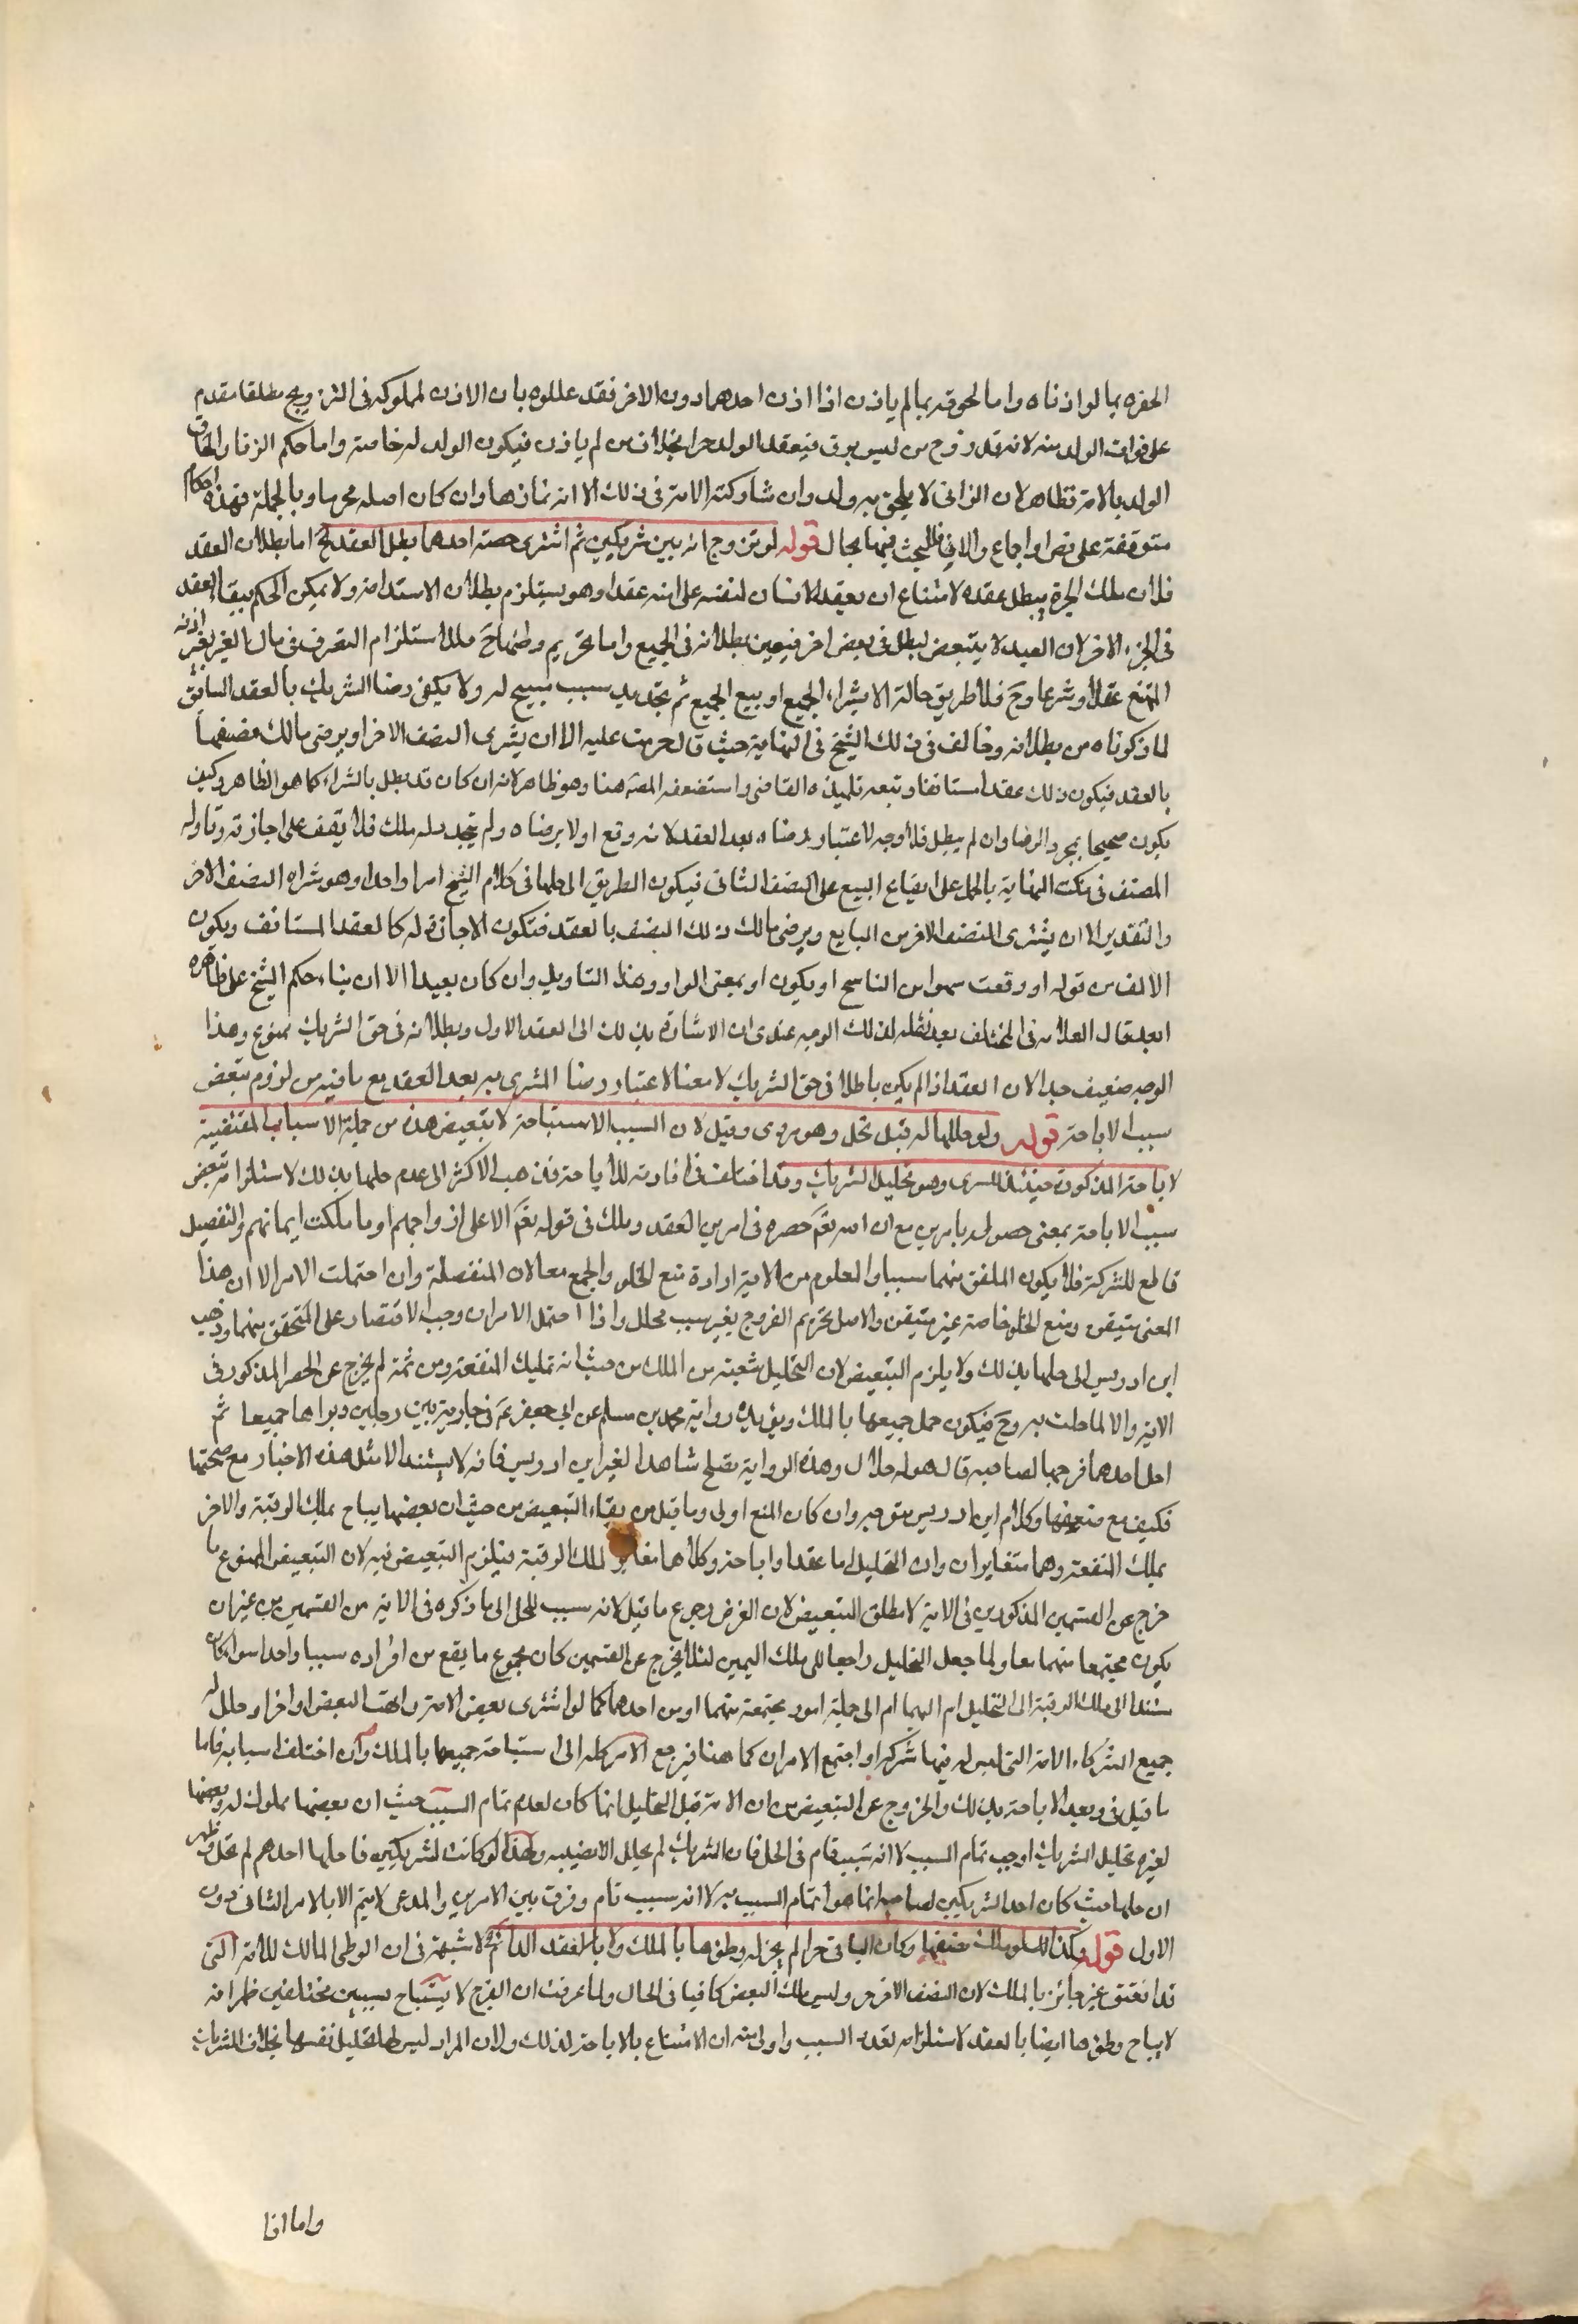 الحقوه بما لو اذناه واما لحوقه بما لم ياذن اذا اذن احدهما دون الاخر فقد عللوه بان الاذن لمملوكه فى التزويج مطلقا مقدم
على فوات الولد منه لانه قد زوج من ليس برق فينعقد الولد حرا بخلاف من لم ياذن فيكون الولد له خاصة واما حكم الزنا والحاق
الولد بالامة فظاهر لان الزانى لا يلحق به ولد وان شاركته الامة فى ذلك الا انه نماؤها وان كان اصله محرما وبالجملة فهذه احكام
متوقفة على نص او اجماع والا فللبحث فيها مجال قوله لو تزوج امة بين شريكين ثم اشترى حصة احدهما بطل العقد الخ اما بطلان العقد
فلان ملك الجزء يبطل عقده لامتناع ان يعقد الانسان لنفسه على امته عقدا وهو يستلزم بطلان الاستدامة ولا يمكن الحكم ببقاء العقد
فى الجزء الاخر لان العقد لا يتبعض ليبطل فى بعض اخر فيتعين بطلانه فى الجميع واما تحريم وطئها ح فلاستلزام التصرف فى مال الغير بغير اذنه
الممتنع عقلا وشرعا وح فلا طريق حالة الا بشراء الجميع او بيع الجميع ثم تجديد سبب مبيح له ولا يكفى رضا الشريك بالعقد السابق
لما ذكرناه من بطلانه وخالف فى ذلك الشيخ فى النهاية حيث قال حرمت عليه الا ان يشترى النصف الاخر او يرضى مالك نصفها
بالعقد فيكون ذلك عقدا مستانفا وتبعه تلميذه القاضى واستضعفه المصه هنا وهو ظاهر لانه ان كان قد بطل بالشراء كما هو الظاهر وكيف
يكون صحيحا بمجرد الرضا وان لم يبطل فلا وجه لاعتبار رضاه بعد العقد لانه وقع اولا برضاه ولم يتجدد له ملك فلا يقف على اجازته وتاوله
المصنف فى نكت النهاية بالحمل على ايقاع البيع على النصف الثانى فيكون الطريق الى حلها فى كلام الشيخ امرا واحدا وهو شراء النصف الاخر
والتقدير الا ان يشترى النصف الاخر من البايع ويرضى مالك ذلك النصف بالعقد فتكون الاجازة له كالعقد المستانف ويكون
الالف من قوله او وقعت سهوا من الناسخ او يكون او بمعنى الواو وهذا التاويل وان كان بعيدا الا ان بناء حكم الشيخ على ظاهره
ابعد قال العلامه فى المختلف بعد نقله لذلك الوجه عندى ان الاشارة بذلك الى العقد الاول وبطلانه فى حق الشريك ممنوع وهذا
الوجه ضعيف جدا لان العقد اذا لم يكن باطلا فى حق الشريك لا معنا لاعتبار رضا المشترى به بعد العقد مع ما فيه من لزوم تبعض
سبب الاباحة قوله ولو حللها له قيل تحل وهو مروى وقيل لان السبب الاستباحة لا يتبعض هذه من جملة الاسباب المقتضية
لاباحة المذكورة حينئذ للمشترى وهو تحليل الشريك وقد اختلف فى افادته للاباحة فذهب الاكثر الى عدم حلها بذلك لاستلزامه تبعض
سبب الاباحة بمعنى حصوله بامرين مع ان الله تعم حصره فى امرين العقد وملك فى قوله تعم الا على ازواجهم او ما ملكت ايمانهم والتفصيل
قاطع للشركة فلا يكون الملفق منهما سببا والمعلوم من الاية ارادة منع الخلو والجمع معا لان المنفصلة وان احتملت الامر الا ان هذا
المعنى متيقن ومنع الخلو خاصة غير متيقن والاصل تحريم الفروج بغير سبب محلل واذا احتمل الامران وجب الاقتصار على المتحقق منهما وذهب
ابن ادريس الى حلها بذلك ولا يلزم التبعيض لان التحليل شعبة من الملك من حيث انه تمليك المنفعة ومن ثمة لم يخرج عن الحصر المذكور فى
الاية والا لما حلت به وح فيكون حمل جميعها بالملك ويؤيده رواية محمد بن مسلم عن ابى جعفر عم فى جارية بين رجلين دبراها جميعا ثم
احل احدهما فرجها لصاحبه قال هو له حلال وهذه الرواية تصلح شاهدا لغير ابن ادريس فانه لا يستند الا مثل هذه الاخبار مع صحتها
فكيف مع ضعفها وكلام ابن ادريس متوجه وان كان المنع اولى وما قيل من بقاء التبعيض من حيث ان بعضها يباح بملك الرقبة والاخر
بملك المنفعة وهما متغايران وان التحليل اما عقد او اباحة وكلاهما مغاير لملك الرقبة فيلزم التبعيض فيه لان التبعيض الممنوع ما
خرج عن القسمين المذكورين فى الاية لا مطلق التبعيض لان الغرض رجوع ما قيل لانه سبب للحل الى ما ذكره فى الاية من القسمين من غير ان
يكون مجتمعا منهما معا ولما جعل التحليل راجعا الى ملك اليمين لئلا يخرج عن القسمين كان مجموع ما يقع من افراده سببا واحدا سواء كان
مستندا الى ملك الرقبة الى التحليل ام اليهما ام الى جملة امور مجتمعة منهما او من احدهما كما لو اشترى بعض الامة واتهب البعض او اخر او حلل له
جميع الشركاء الامة التى ليس له فيها شركه او اجتمع الامران كما هنا فيرجع الامر كله الى استباحة جميعها بالملك وان اختلف اسبابه فاما
ما قيل فى وبعد الاباحة بذلك والخروج عن التبعيض من ان الامة قبل التحليل انما كان لعدم تمام السبب حيث ان بعضها مملوك له وبعضها
لغيره تحليل الشريك اوجب تمام السبب لا انه سبب تام فى الحل فان الشريك لم يحلل الا نصيبه ولهذا لو كانت لشريكين فاحلها احدهم لم تحل وظهر
ان حلها حيث كان احد الشريكين لصاحبه انما هو اتمام السبب به لا انه سبب تام وفرق بين الامرين والمدعى لا يتم الا بالامر الثانى دون
الاول قوله وكذا لو ملك نصفها وكان الباقى حرا لم يجز له وطؤها بالملك ولا بالعقد الدائم الخ لا شبهة فى ان الوطى المالك للامة التى
قد انعتق غير جائز بالملك لان النصف الاخر حر وليس ملك البعض كافيا فى الحال ولما عرفت ان الفرج لا يستباح بسببين مختلفين ظهر انه
لا يباح وطؤها ايضا بالعقد لاستلزامه تعدد السبب واولى منه ان الامتناع بالاباحة لذلك ولان المراد ليس لها تحليل نفسها بخلاف الشريك
واما اذا